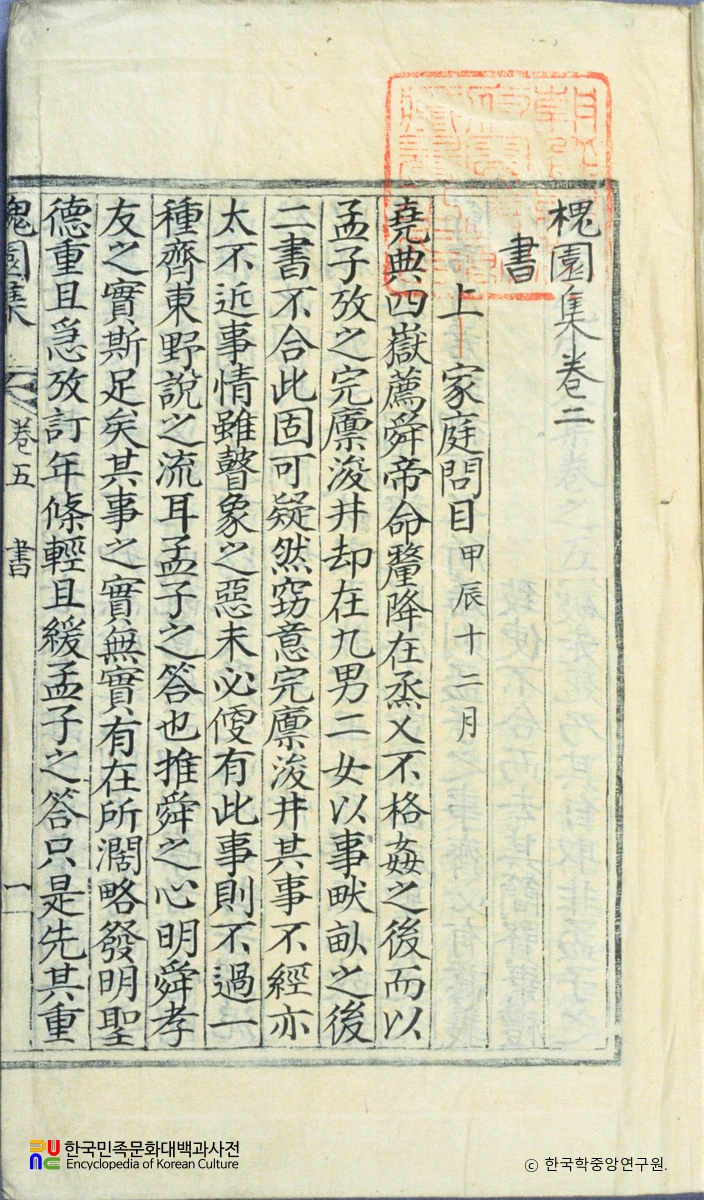 槐園集卷二
書
上家庭問目 甲辰十二月
堯典四嶽薦舜帝命釐降在烝乂不格姦之後而以
孟子攷之完廩浚井却在九男二女以事畎畝之後
二書不合此固可疑然竊意完廩浚井其事不經亦
太不近事情雖瞽象之惡未必傻有此事則不過一
種齊東野說之流耳孟子之答也推舜之心明舜孝
友之實斯足矣其事之實無實有在所濶略發明聖
德重且急攷訂年條輕且緩孟子之答只是先其重
槐園集 卷五 書 一
한국민족문화대백과사전
Encyclopedia of Korean Culture
© 한국학중앙연구원.